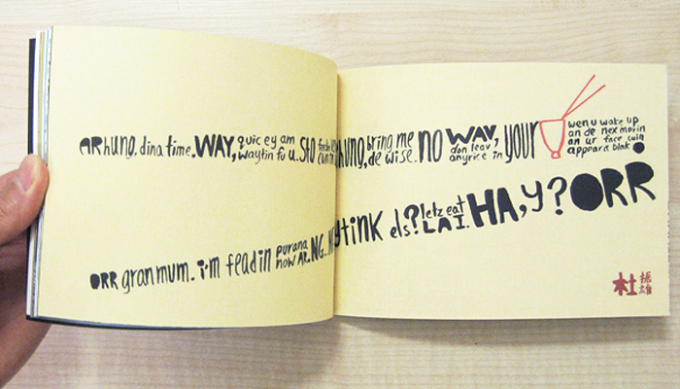 ARhung. dina time. WAY, quic ey am waytin fu u. Sto hung, bring me de wise. no WAY, don leav anyrice in your wen u wake up an de nex morin an ur face cuin appeara blak!
ORR granmum. i'm feadin purana now AR. NG... ytink els? letz eat LAI. HA, y? ORR
杜 雄